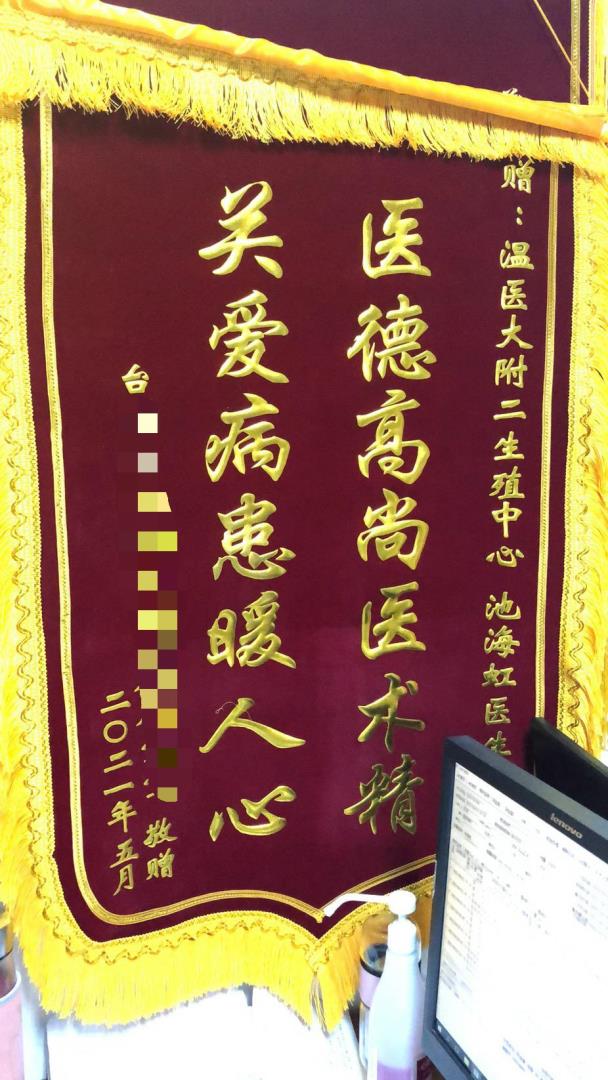 赠：温医大附二生殖中心 池海虹医生
医德高尚医术精
关爱病患暖人心
台
敬赠
二〇二一年五月
lenovo